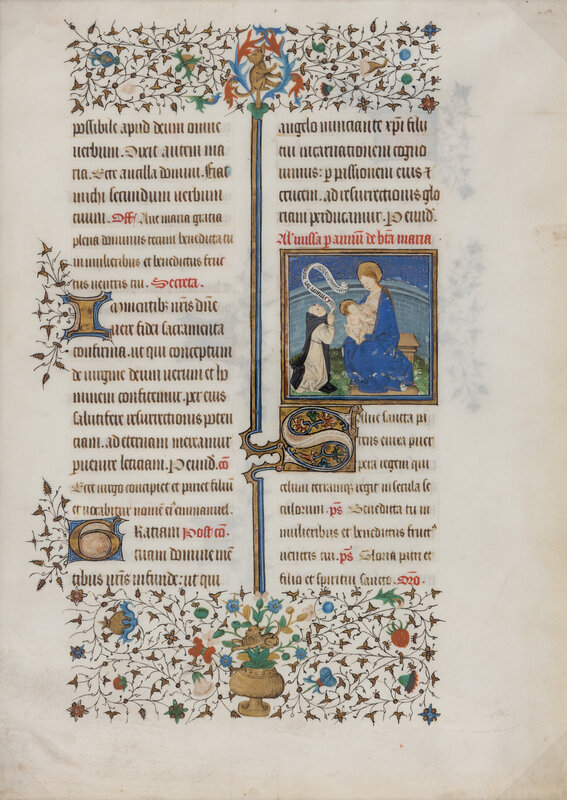 possibile apud deum omne
verbum. Dixit autem ma
ria. Ecce ancilla domini. Fiat
michi secundum verbum
tuum. Off. Ave maria gracia
plena dominus tecum benedicta tu
in mulieribus et benedictus fruc
tus ventris tui. Secreta.
In mentibꝫ nr̄is dn̄e
vere fidei sacramenta
confirma. ut qui conceptum
de virgine deum verum et ho
minem confitemur. per eius
salutifere resurrectionis poten
ciam. ad eternam mereamur
pervenire leticiam. P eund. co
Ecce virgo concipiet et pariet filiū
et vocabitur nomē eꝰ emanuel.
Gratiam Post cō.
tuam domine mē
tibus nr̄is infunde. ut qui
angelo nunciante xp̄i filii
tui incarnationem cogno
vimus. p passionem eius ⁊
crucem. ad resurrectionis glo
riam perducamur. P eund.
Ad missā p annū de bt̄a maria
Salve sancta pa
rens enixa puer
pera regem qui
celum terramqꝫ regit in secula se
culorum. ps̄ Benedicta tu in
mulieribus et benedictus fructꝰ
ventris tui. ps̄ Gloria patri et
filio et spiritui sancto. Oro.